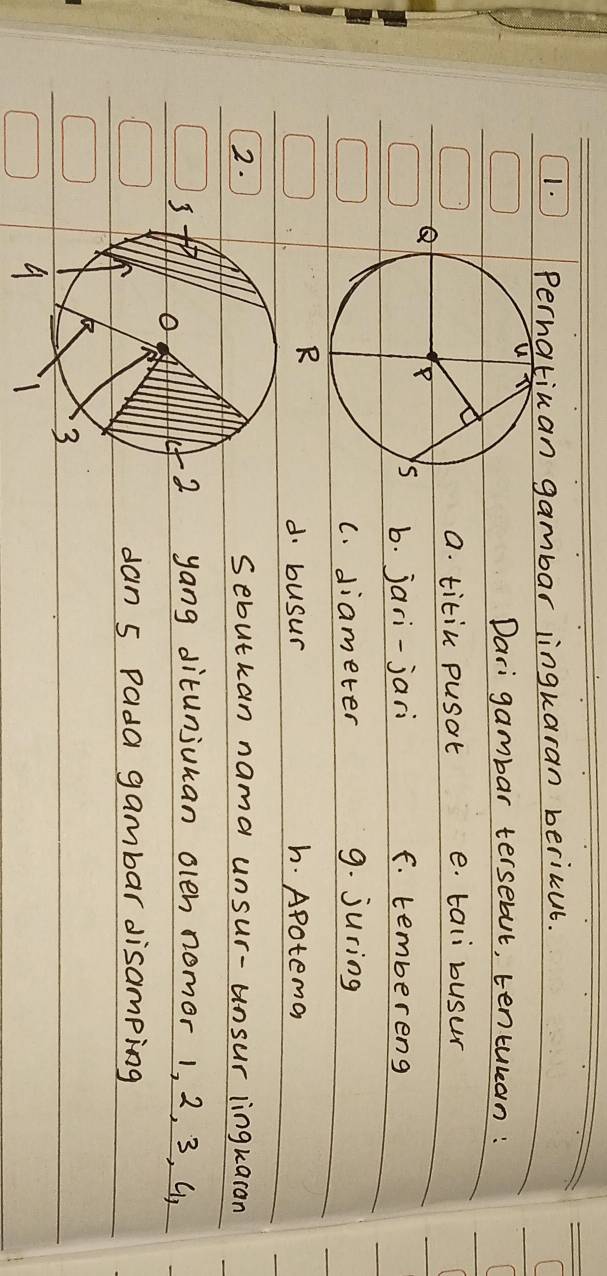 1. Perhatikan gambar lingkaran berikut.
Dari gambar tersebut, tentukan:
a. titik pusat e. tali busur
b. jari-jari f. tembereng
c. diameter g. juring
d. busur h. Apotema
U
Q
P
S
R
2. Sebutkan nama unsur-unsur lingkaran
yang ditunjukan oleh nomor 1, 2, 3, 4,
dan 5 pada gambar disamping
5
O
2
4
1
3